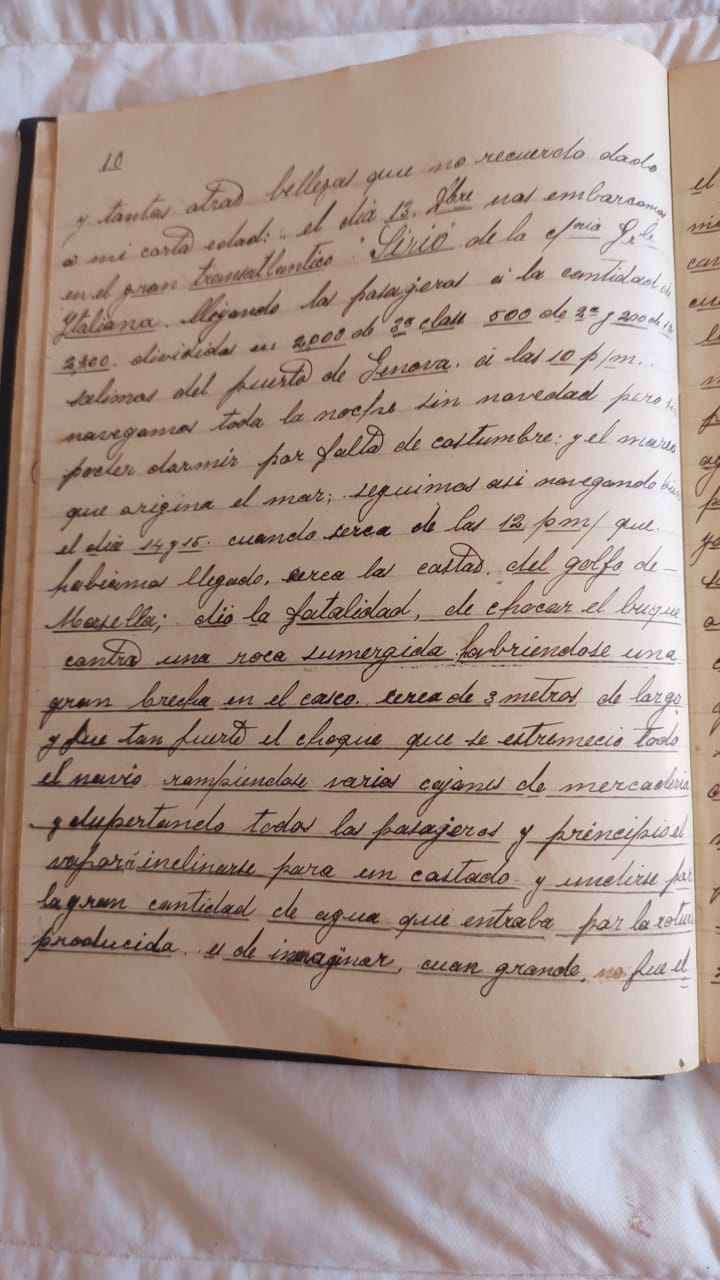 10
y tantas otras bellezas que no recuerdo dado
a mi corta edad: el dia 13. 9bre nos embarcamos
en el gran transatlantico "Sirio" de la c/ria Grle
Ytaliana. llegando los pasageros a la cantidad de
2,700. divididos en 2,000 de 3a clase 500 de 2a y 200 de 1a
salimos del puerto de Genova. a las 10 p/m..
navegamos toda la noche sin novedad pero sin
poder dormir por falta de costumbre: y el mareo
que origina el mar; seguimos asi navegando bien
el dia 14 y 15. cuando serca de las 12 pm/ que.
habiamos llegado, serca las costas. del golfo de-
Marsella; dio la fatalidad, de chocar el buque
contra una roca sumergida habriendose una
gran brecha en el casco. serca de 3 metros de largo
y fue tan fuerte el choque que se estremecio todo
el navio rompiendose varios cajones de mercaderia
y dispertando todos los pasajeros y principio el
vapor á inclinarse para un costado y undirse por
la gran cantidad de agua que entraba por la rotura
producida. es de imaginar, cuan grande, no fue el
el